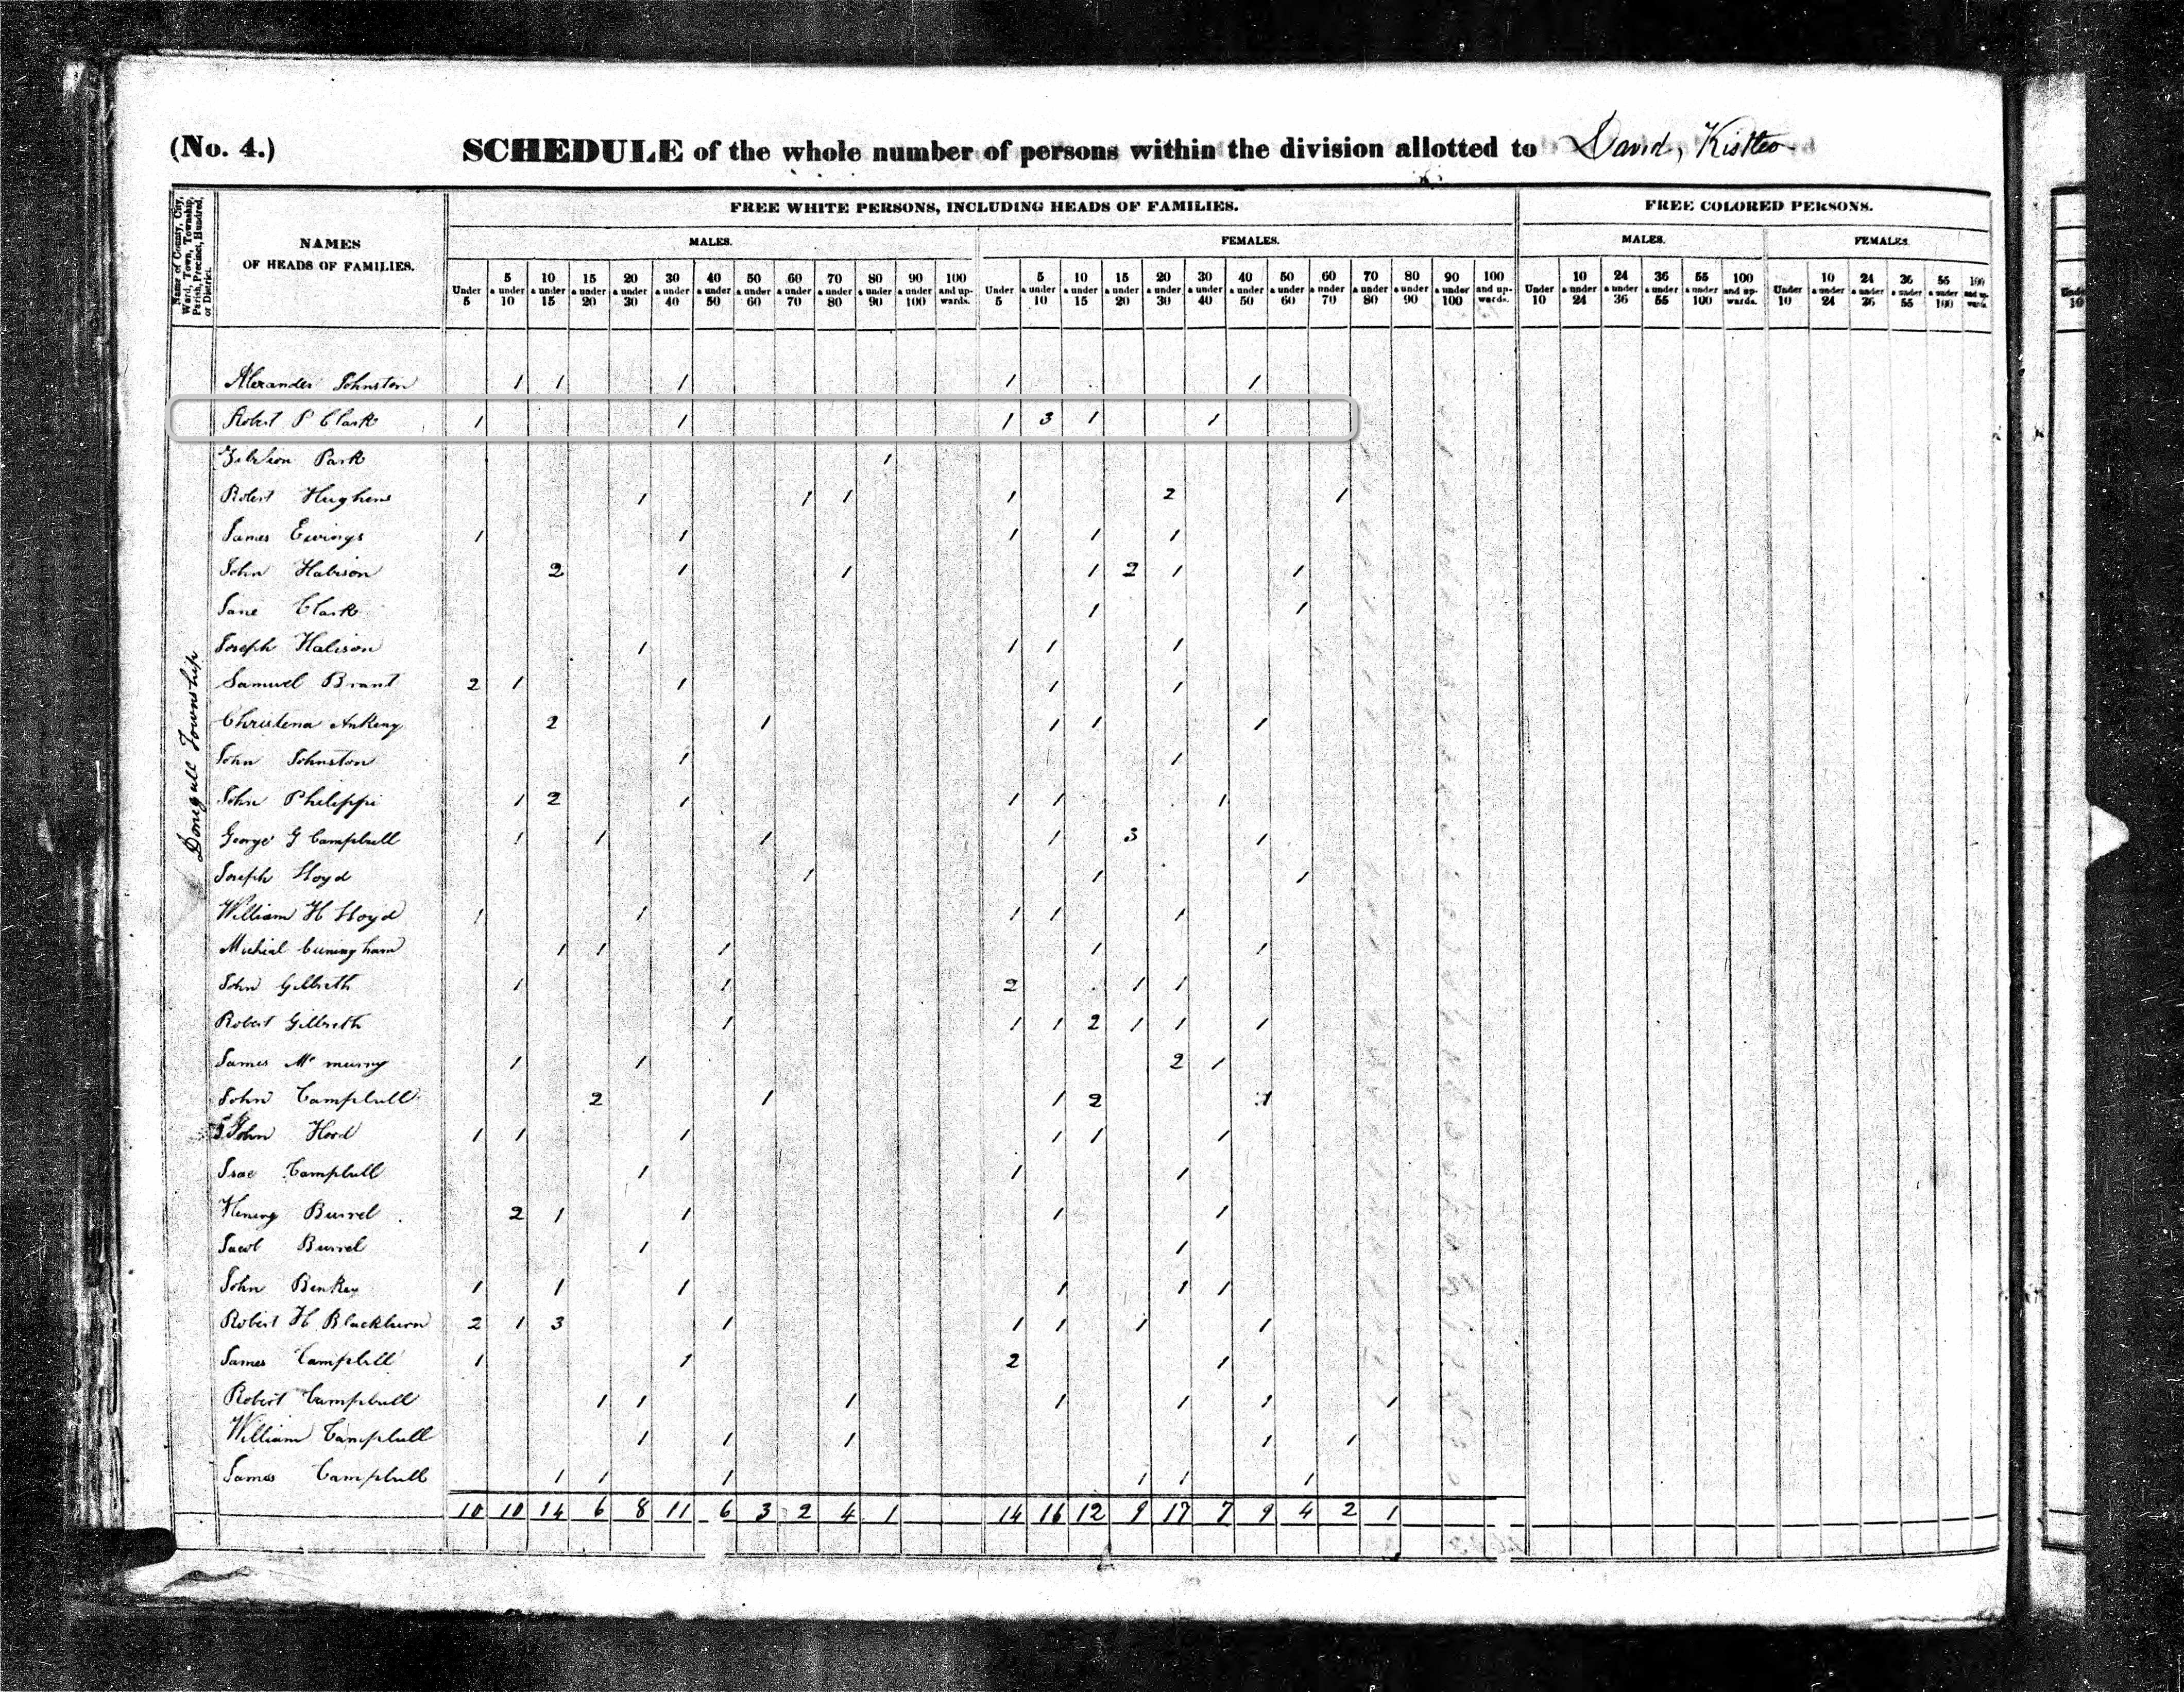 (No. 4.) SCHEDULE of the whole number of persons within the division allotted to David, Kistler
Name of County, City, Ward, Town, Township, Parish, Precinct, Hundred, or District.
NAMES OF HEADS OF FAMILIES.
FREE WHITE PERSONS, INCLUDING HEADS OF FAMILIES.
FREE COLORED PERSONS.
MALES. FEMALES. MALES. FEMALES.
Under 5 5 & under 10 10 & under 15 15 & under 20 20 & under 30 30 & under 40 40 & under 50 50 & under 60 60 & under 70 70 & under 80 80 & under 90 90 & under 100 100 and upwards. Under 5 5 & under 10 10 & under 15 15 & under 20 20 & under 30 30 & under 40 40 & under 50 50 & under 60 60 & under 70 70 & under 80 80 & under 90 90 & under 100 100 and upwards. Under 10 10 & under 24 24 & under 36 36 & under 55 55 & under 100 100 and upwards. Under 10 10 & under 24 24 & under 36 36 & under 55 55 & under 100 100 and upwards.
Donegall Township
Alexander Johnston 1 1 1 1 1
Robert P Clark 1 1 1 3 1 1
Park 1
Robert Hughens 1 1 1 1 2 1
James Ewings 1 1 1 1 1
John Habison 2 1 1 1 2 1 1
Jane Clark 1 1
Joseph Habison 1 1 1 1
Samuel Brant 2 1 1 1 1
Christena Ankeny 2 1 1 1 1
John Johnston 1 1
John Philippi 1 2 1 1 1 1
George G Campbell 1 1 1 1 3 1
Joseph Lloyd 1 1 1
William H Lloyd 1 1 1 1 1
Micheal Cuningham 1 1 1 1 1
John Gilbreth 1 1 2 1 1
Robert Gilbreth 1 1 1 2 1 1 1
James Mc murry 1 1 2 1
John Campbell 2 1 1 2 1
John Hood 1 1 1 1 1 1
Isac Campbell 1 1 1
Henery Burrel 2 1 1 1 1
Jacob Burrel 1 1
John Benkey 1 1 1 1 1 1
Robert H Blackburn 2 1 3 1 1 1 1 1
James Campbell 1 1 2 1
Robert Campbell 1 1 1 1 1 1 1
William Campbell 1 1 1 1 1
James Campbell 1 1 1 1 1 1
10 10 14 6 8 11 6 3 2 4 1 14 16 12 9 17 7 9 4 2 1
Under 10